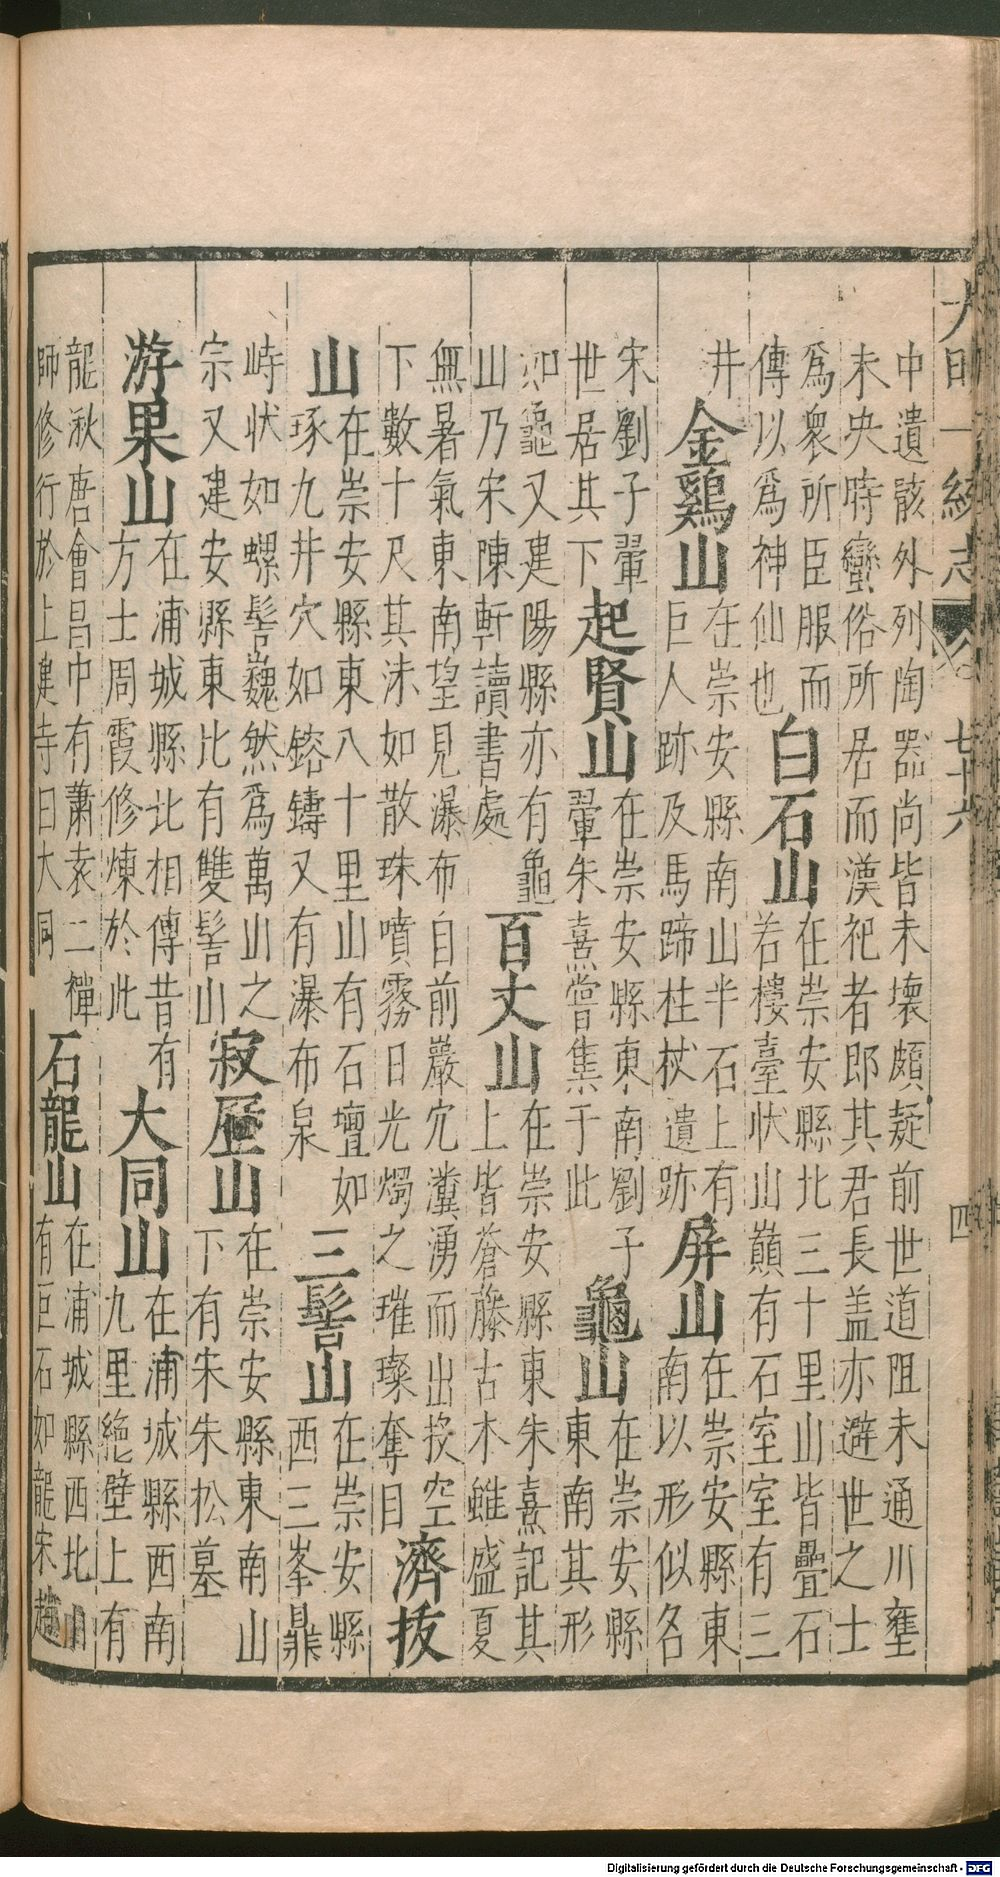 大明一統志 卷七十六 四
中遺骸外列陶器尚皆未壞頗疑前世道阻未通川壅
未央時蠻俗所居而漢祀者郎其君長盖亦避世之士
為衆所臣服而
傳以為神仙也
白石山
在崇安縣北三十里山皆疊石
若樓臺狀山巔有石室室有三
井
金鷄山
在崇安縣南山半石上有
巨人跡及馬蹄柱杖遺跡
屏山
在崇安縣東
南以形似名
宋劉子翬
世居其下
起賢山
在崇安縣東南劉子
翬朱熹嘗集于此
龜山
在崇安縣
東南其形
如龜又建陽縣亦有龜
山乃宋陳軒讀書處
百丈山
在崇安縣東朱熹記其
上皆蒼藤古木雖盛夏
無暑氣東南望見瀑布自前巖穴瀵湧而出投空
下數十尺其沫如散珠噴霧日光燭之璀璨奪目
濟拔
山
在崇安縣東八十里山有石壇如
琢九井穴如鎔鑄又有瀑布泉
三髻山
在崇安縣
西三峯鼎
峙狀如螺髻巍然為萬山之
宗又建安縣東北有雙髻山
寂歷山
在崇安縣東南山
下有宋朱松墓
游果山
在浦城縣北相傳昔有
方士周霞修煉於此
大同山
在浦城縣西南
九里絶壁上有
龍湫唐會昌中有蕭袁二禪
師修行於上建寺曰大同
石龍山
在浦城縣西北
有巨石如龍宋趙
Digitalisierung gefördert durch die Deutsche Forschungsgemeinschaft - DFG